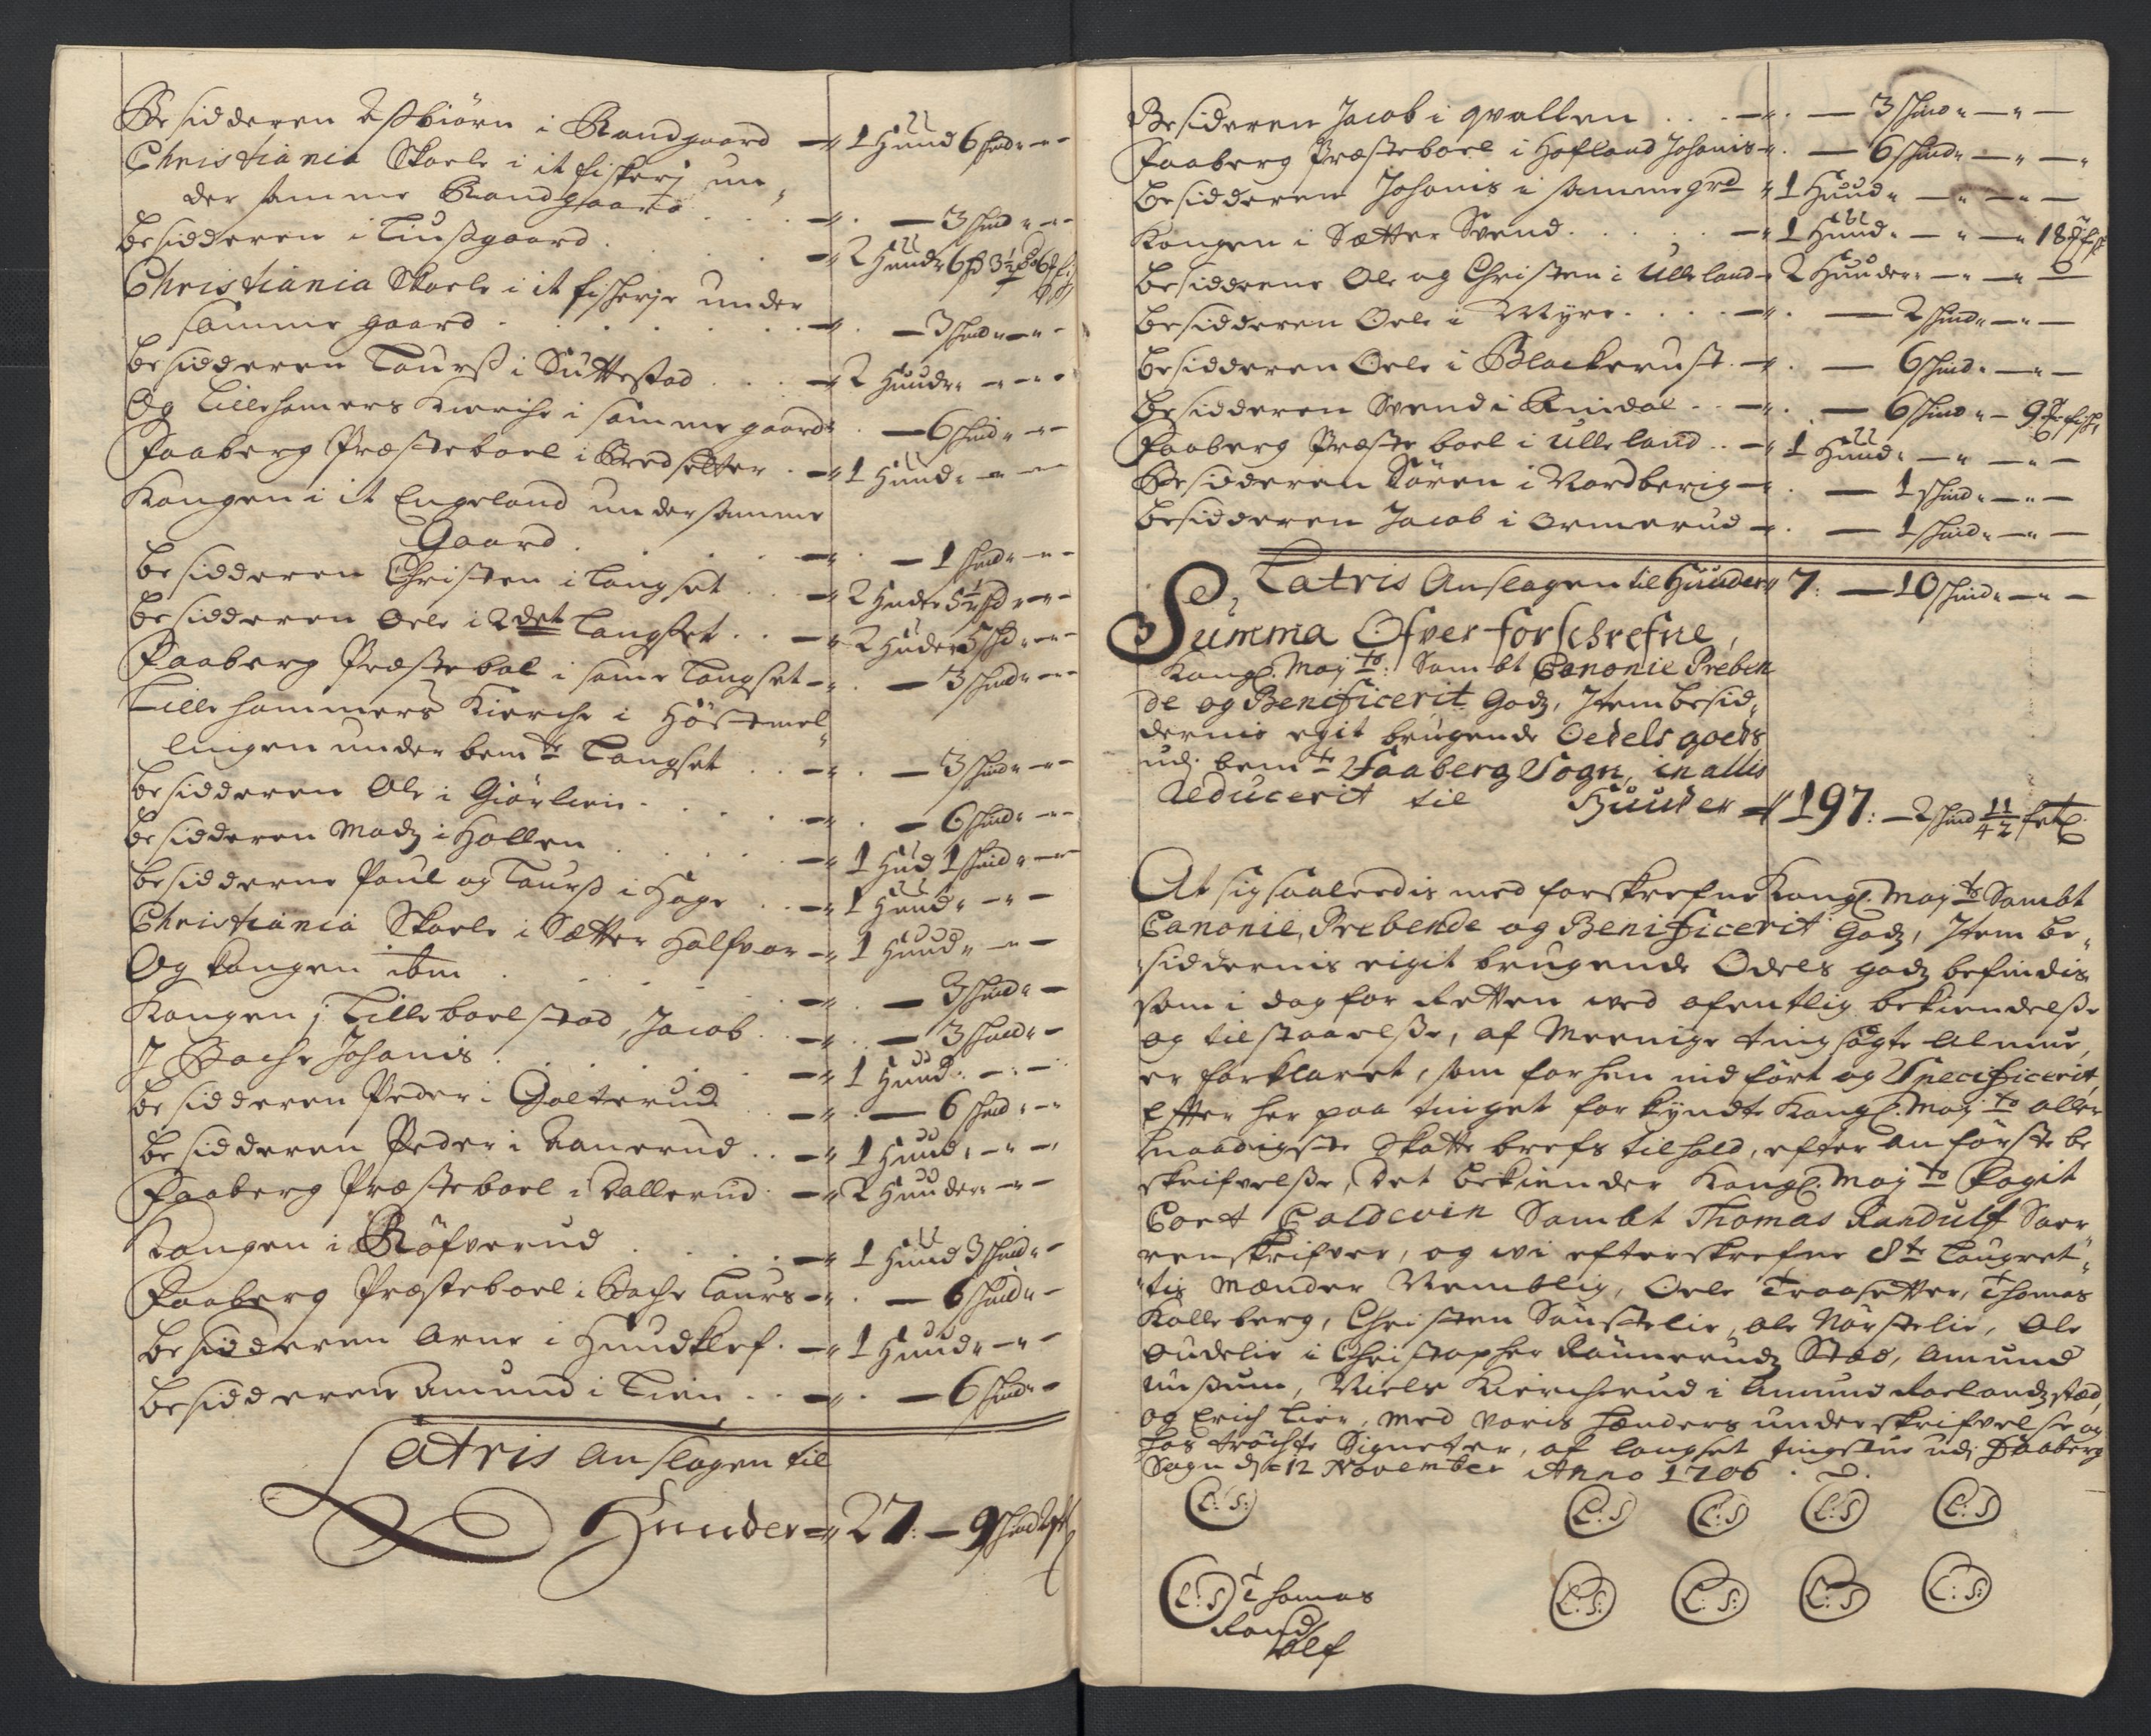 Besidderen Essbiörn i Randgaard — 1 Huud 6 skind
Christiania Skoele i it fiskerj un
der samme Randgaard — 3 skind
besidderen i Liussgaard — 2 Huuder 6
Christiania Skoele i it fischerje under
samme gaard — 3 skind
besidderen Laurss i Suttestad — 2 Huuder
Og Lillehamers Kierche i samme gaard — 6 skind
Faaberg Præsteboel i Bredsetter — 1 Huud
Kongen i it Engeland under samme
Gaard — 1 skind
besidderen Christen i Langset — 2 Huder 5½ skd
besidderen Oele i 2det Langset — 2 Huder 5 skd
Faaberg Præstebol i same Langset — 3 skind
Lillehammers Kierche i Höstmel
lingen under bemte Langset — 3 skind
besidderen Ole i Giörlien — 6 skind
besidderen Madz i Hollen — 1 Hud 1 skind
besidderne Poul og Laurss i Hage — 1 Huud
Christiania Skoele i Sætter Halfvor — 1 Huud
Og kongen ibm — 3 skind
Kongen i Lilleboelstad, Jacob — 3 skind
I Bache Johanis — 1 Huud
besidderen Peder i Goelterud — 6 skind
besidderen Peder i Aanerud — 1 Huud
Faaberg Præsteboel i Dallerud — 2 Huuder
Kongen i Röfverud — 1 Huud 3 skind
Faaberg Præsteboel i Bache Laurs — 6 skind
besidderen Arne i Hundklef — 1 Huud
besidderen Amund i Lien — 6 skind
Latris Anslagen til
Huuder 27: — 9 skind
Besideren Jacob i qvallen — 3 skind
Faaberg Præsteboel i Hofland Johanis — 6 skind
besidderen Johanis i samme grd 1 Huud
Kongen i Sætter Svend — 1 Huud — 18
besidderne Ole og Christen i Ulleland 2 Huuder
besidderen Oele i Myre — 2 skind
besidderen Oele i Blackerust — 6 skind
besidderen Svend i Rindal — 6 skind — 9
Faaberg Præste boel i Ulleland — 1 Huud
Besidderen Sören i Nordberig — 1 skind
besidderen Jacob i Ormerud — 1 skind
Latris Anslagen til Huuder 7: — 10 skind
Summa Ofver forschrefne,
Kongl: Mayts: Sambt Canonie Preben
de og Beneficerit Godz, Item besid
dernis egit brugende Oedels goeds
udj bemte Faaberg Sogn, in allis
Reducerit til Huuder 197: — 2 skind 11/42
At sig saaleedis med forskrefne Kongl. Mayts Sambt
Canonie, Prebende og Benificerit Godz, Item be
siddernis eigit brugende Odels godz befindis
som i dag for Retten ved ofentlig bekiendelsse
og tilstaaelsse, af Meenige tingsögte Almue,
er forklaret, som forhen indfört og Specificerit,
Efter her paa tinget forkyndte Kongl. Mayts aller
naadigste Skatte brefs tilhold, efter an förste be
skrifvelsse, Det bekiender Kongl. Mayts Fogit
Cort Coldevin Sambt Thomas Randulf Soer
renskrifver, og wi efterskrefne 8te Laugret
tis Mænder Nemblig, Oele Traasetter, Thomas
Kolleberg, Christen Sönstelie, ole Nörstelie, Ole
Sudelie i Christopher Rönnerudz Sted, Amund
, Niels Kiercherud i Amund Roelandz sted,
og Erich Lier, Med voris hænders underskrifvelse og
hos tröchte Signeter, af Langset tingstue udj Faaberg
Sogn d: 12 November Anno 1706
L: S: L: S L: S L: S L: S
L: S Thomas L: S: L: S: L: S L: S:
Rand
olf